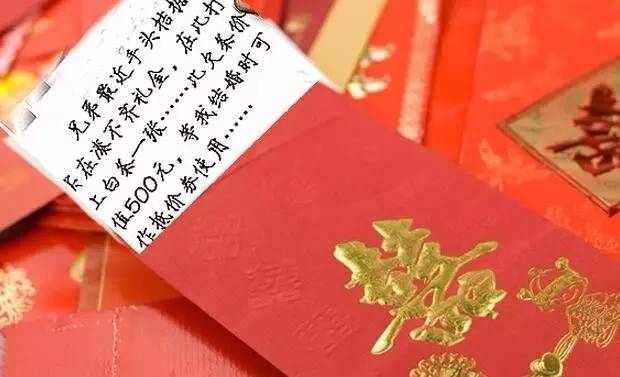 兄弟最近手头拮据
实在凑不齐礼金，在此打
上白条一张……此欠条价
值500元，等我结婚时可
作抵价券使用……
囍
囍